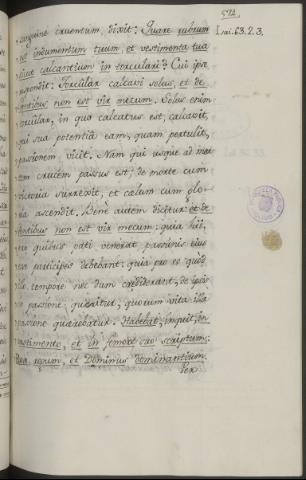 592.
sanguine cruentum, dixit: Quare rubrum Isai. 63. 2. 3.
est indumentum tuum, et vestimenta tua
sicut calcantium in torculari? Cui ipsa
respondit: Torcular calcavi solus, et de
gentibus non est vir mecum. Solus enim
torcular, in quo calcatus est, calcavit,
qui sua potentia eam, quam pertulit,
passionem vicit. Nam qui usque ad mor
tem crucem passus est, de morte cum
victoria surrexit, et cælum cum glo
ria ascendit. Bene autem dicitur: et de
gentibus non est vir mecum: quia hii,
pro quibus pati venerat passionis ejus
esse participes debebant: quia pro eo quod
illo tempore nec dum crediderant, de ipsis
in passione queritur, quorum vita illa
passione quærebatur. Habebat, inquit, in
vestimento, et in femore suo scriptum:
Rex regum, et Dominus dominantium.
Rex